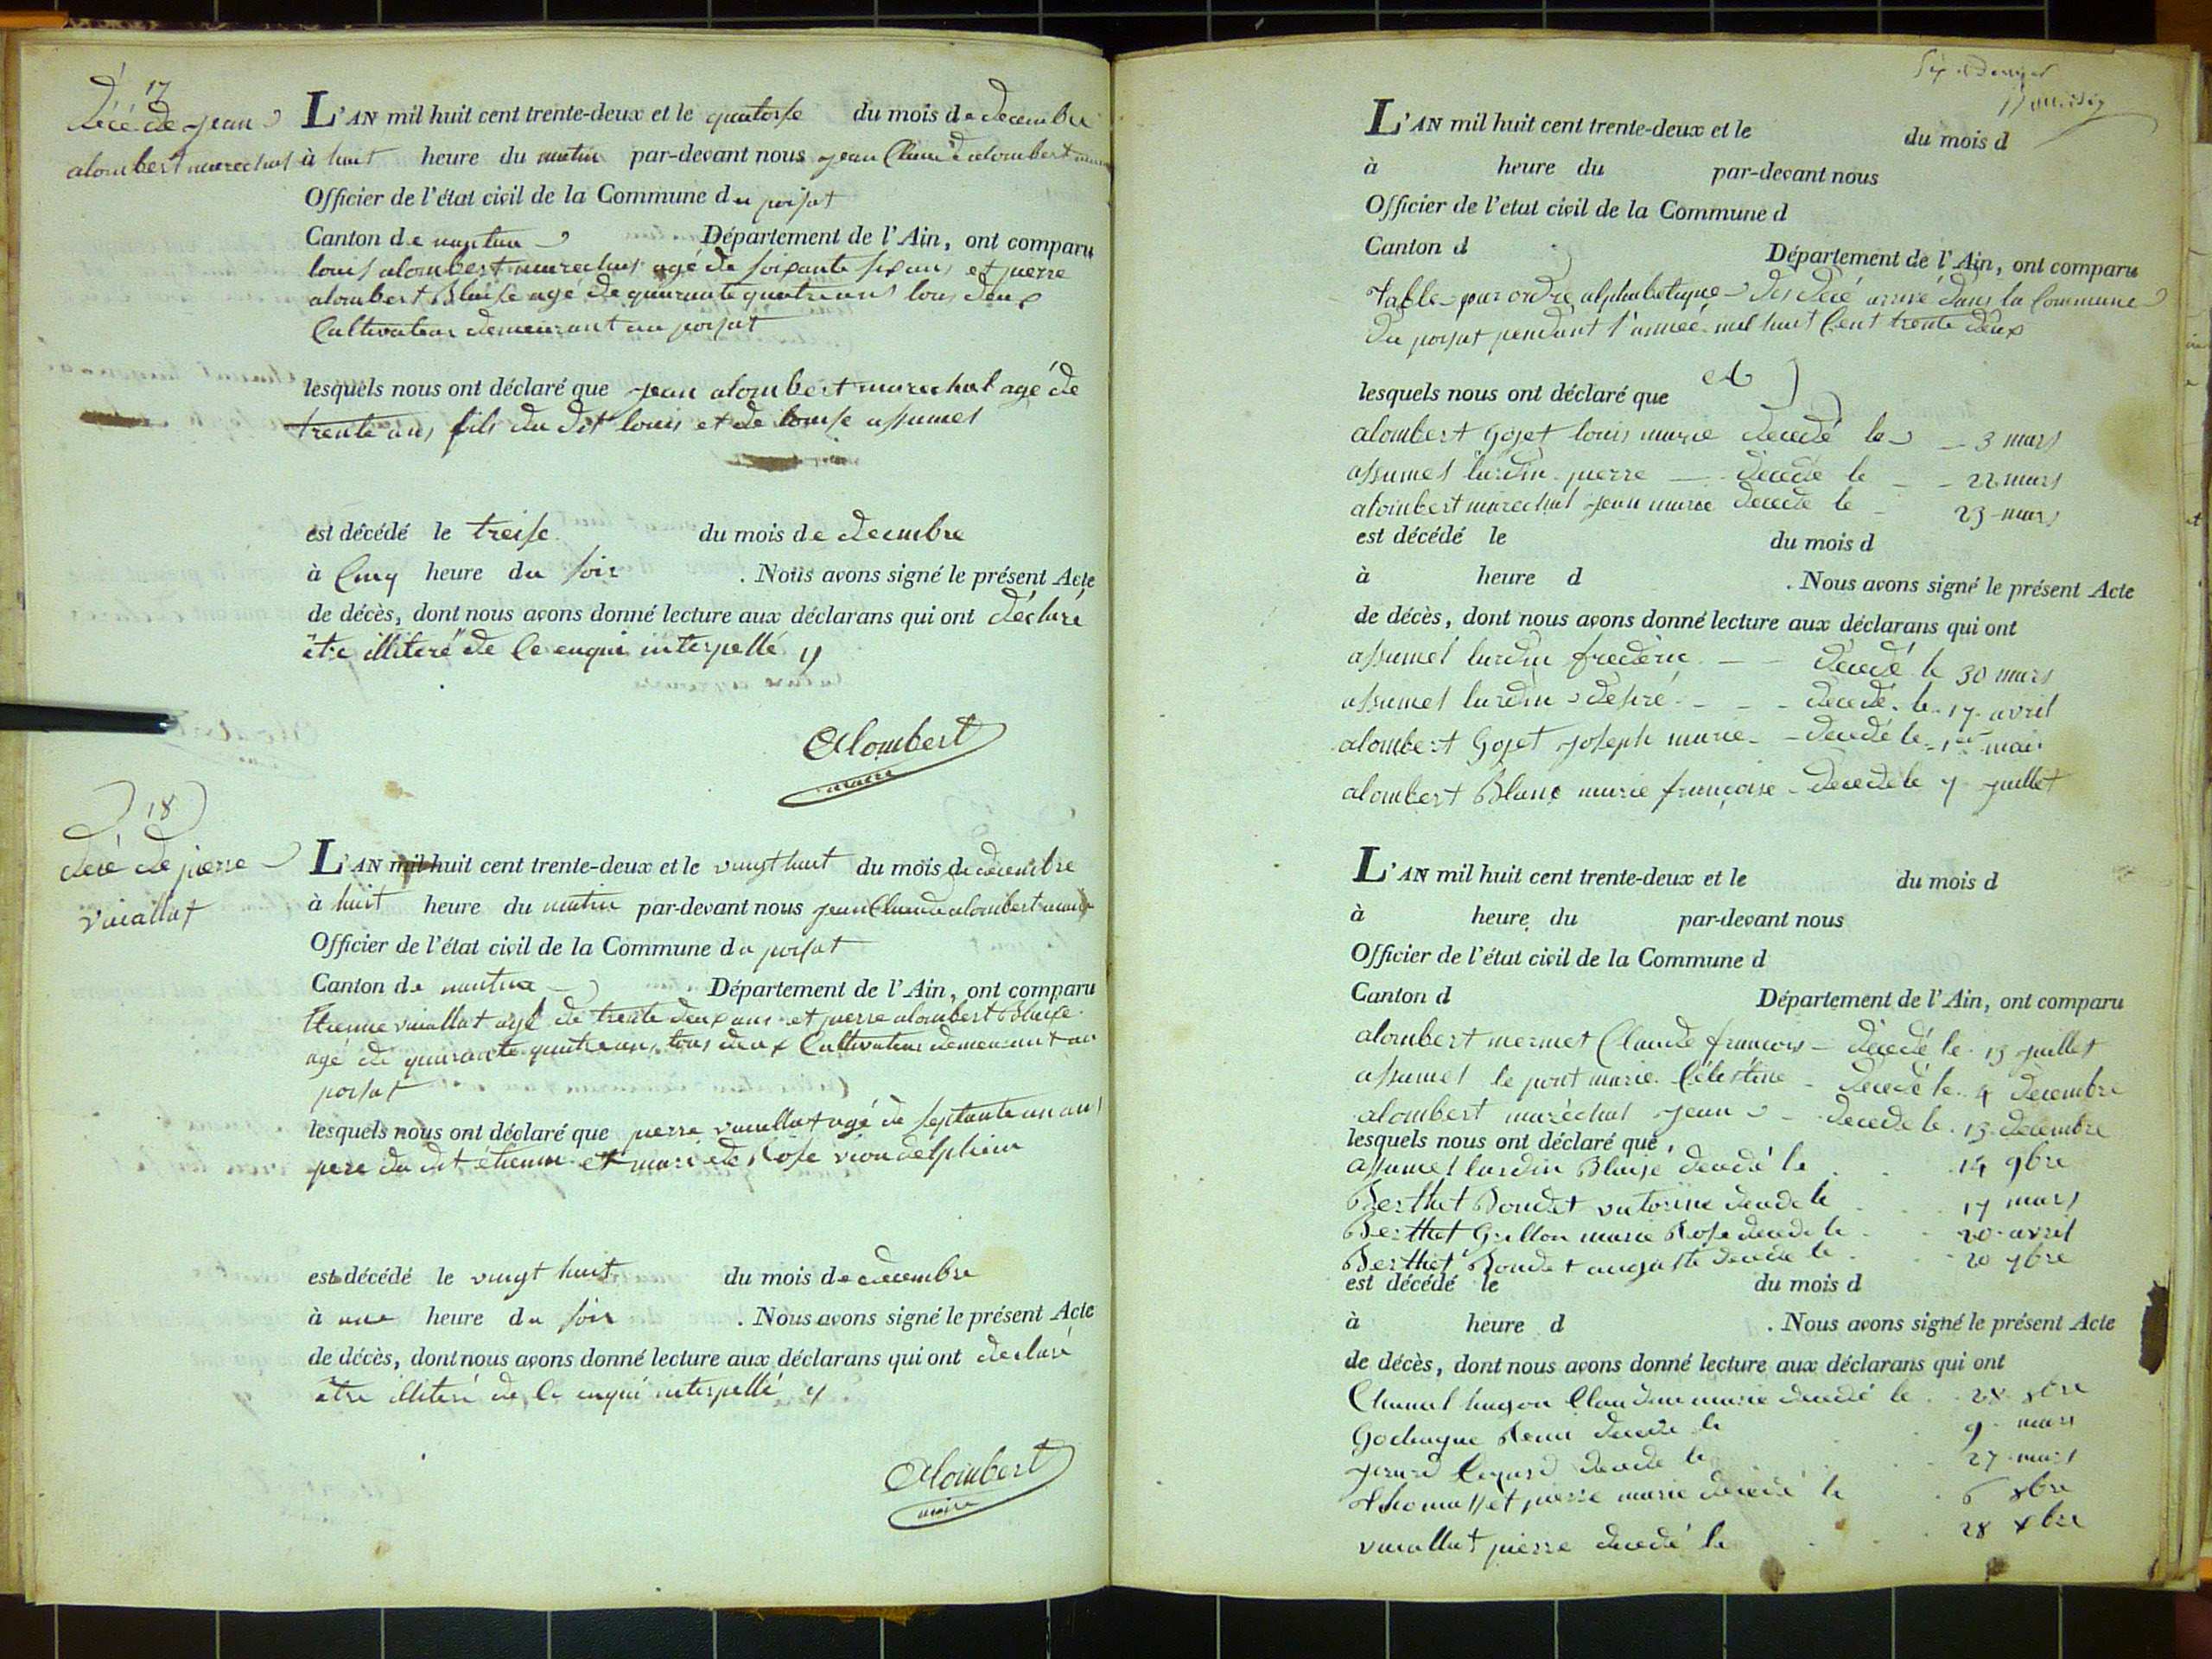 17
décé de jean
alombert marechal
L'AN mil huit cent trente-deux et le quatorse du mois de decembre
à huit heure du matin par-devant nous jean Claude alombert maire
Officier de l'état civil de la Commune du poisat
Canton de nantua Département de l'Ain, ont comparu
louis alombert marechal agé de soixante six ans et pierre
alombert Blaise agé de quarante quatre ans tous deux
Cultivateur demeurant au poisat
lesquels nous ont déclaré que jean alombert marechal agé de
trente ans fils du dit louis et de louise assumel
est décédé le treise du mois de decembre
à Cinq heure du soir . Nous avons signé le présent Acte
de décès, dont nous avons donné lecture aux déclarans qui ont déclaré
être illiteré de ce enqui interpellé
Alombert
maire
18
décé de pierre
vuaillat
L'AN mil huit cent trente-deux et le vingt huit du mois de decembre
à huit heure du matin par-devant nous jean Claude alombert maire
Officier de l'état civil de la Commune du poisat
Canton de nantua Département de l'Ain, ont comparu
Etienne vuaillat agé de trente deux ans et pierre alombert Blaise
agé de quarante quatre ans tous deux Cultivateur demeurant au
poisat
lesquels nous ont déclaré que pierre vuaillat agé de septante un ans
pere du dit étienne et mari de Rose vion delphin
est décédé le vingt huit du mois de decembre
à une heure du soir . Nous avons signé le présent Acte
de décès, dont nous avons donné lecture aux déclarans qui ont declaré
être illiteré de ce enqui interpellé
Alombert
maire
L'AN mil huit cent trente-deux et le du mois d
à heure du par-devant nous
Officier de l'état civil de la Commune d
Canton d Département de l'Ain, ont comparu
table par ordre alphabetique des décé arrivé dans la Commune
du poisat pendant l'année mil huit Cent trente deux
lesquels nous ont déclaré que A
alombert Gojet louis marie decedé le 3 mars
assumel lardin pierre decedé le 22 mars
alombert marechal jean marie decedé le 23 mars
est décédé le du mois d
à heure d . Nous avons signé le présent Acte
de décès, dont nous avons donné lecture aux déclarans qui ont
assumel lardin frederic decedé le 30 mars
assumel lardin désiré decedé le 17 avril
alombert Gojet joseph marie decedé le 1er mai
alombert Blanc marie françoise decedé le 7 juillet
L'AN mil huit cent trente-deux et le du mois d
à heure du par-devant nous
Officier de l'état civil de la Commune d
Canton d Département de l'Ain, ont comparu
alombert mermet Claude françois décedé le 13 juillet
assumel le pont marie Célestine decedé le 4 decembre
alombert maréchal jean decedé le 13 decembre
lesquels nous ont déclaré que
assumel lardin Blaise decedé le 14 9bre
Berthet Boudet victorine decedé le 17 mars
Berthet Grillon marie Rose decedé le 20 avril
Berthet Boudet auguste decedé le 20 7bre
est décédé le du mois d
à heure d . Nous avons signé le présent Acte
de décès, dont nous avons donné lecture aux déclarans qui ont
hugon Claudine marie decedé le 28 8bre
Godugne Remi decedé le 9 mars
decedé le 27 mars
thomasset pierre marie decedé le 6 8bre
vuaillat pierre decedé le 28 xbre